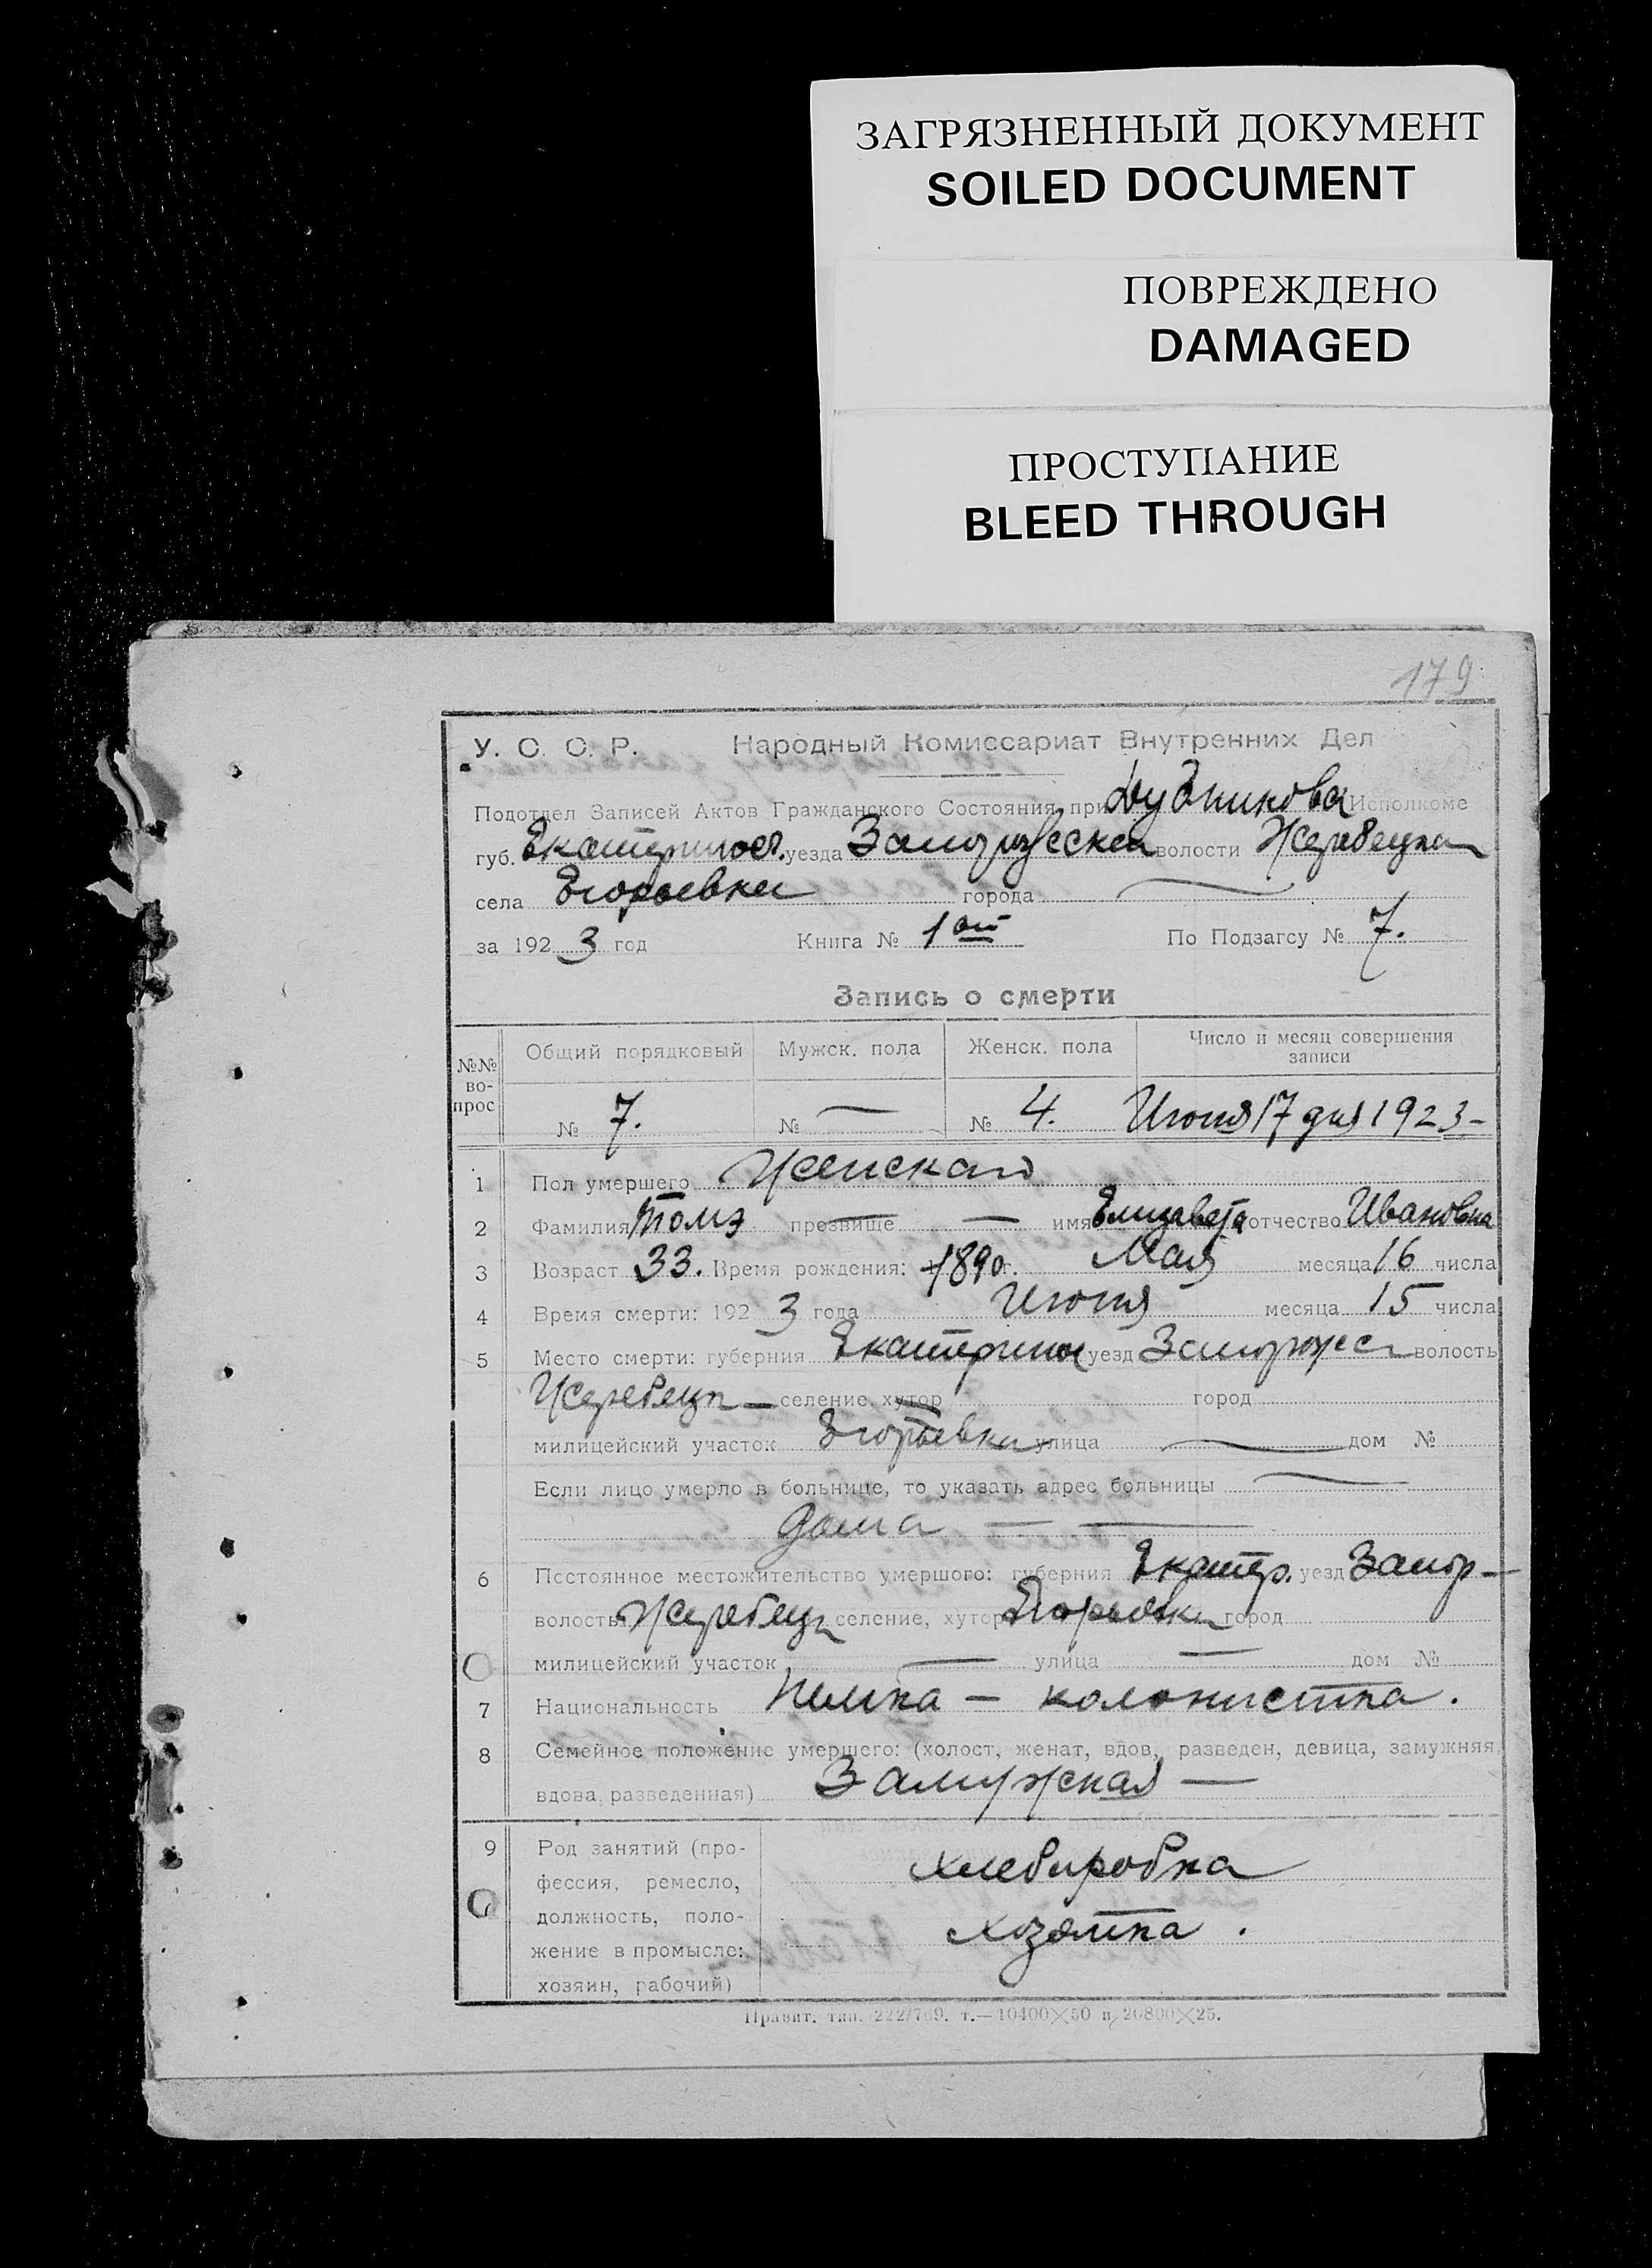 ЗАГРЯЗНЕННЫЙ ДОКУМЕНТ
SOILED DOCUMENT
ПОВРЕЖДЕНО
DAMAGED
ПРОСТУПАНИЕ
BLEED THROUGH
179
У. С. С. Р. Народный Комиссариат Внутренних Дел
Подотдел Записей Актов Гражданского Состояния при Исполкоме
губ. Екатеринос. уезда волости Жеребецкая
села Егорьевки города —
за 1923 год Книга № 1ой По Подзагсу № 7.
Запись о смерти
№№ вопрос Общий порядковый Мужск. пола Женск. пола Число и месяц совершения записи
№ 7. № — № 4. Июня 17 дня 1923 -
1 Пол умершего Женскаго
2 Фамилия Томэ прозвище — — имя Елизавета отчество Ивановна
3 Возраст 33. Время рождения: 1890 г. Мая месяца 16 числа
4 Время смерти: 1923 года Июня месяца 15 числа
5 Место смерти: губерния Екатеринос уезд Запорожск волость
Жеребецк — селение, хутор город
милицейский участок Егорьевки улица — дом №
Если лицо умерло в больнице, то указать адрес больницы —
дома — —
6 Постоянное местожительство умершого: губерния Екатер. уезд Запор -
волость Жеребецк селение, хутор Егорьевки город
милицейский участок — улица — дом №
7 Национальность Немка - колонистка.
8 Семейное положение умершего: (холост, женат, вдов, разведен, девица, замужняя,
вдова, разведенная) Замужная —
9 Род занятий (про-
фессия, ремесло, хлебиробка
должность, поло-
жение в промысле: хозяйка.
хозяин, рабочий)
Правит. тип. 222/769. т.—10400×50 п, 20800×25.